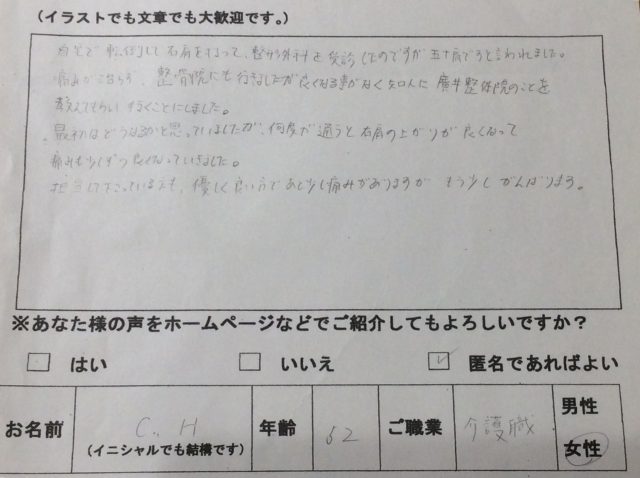 (イラストでも文章でも大歓迎です。)
自宅で転倒して右肩をうって、整形外科を受診したのですが五十肩ですと言われました。
痛みがとれず、整骨院にも行きましたが良くなる事がなく知人に廣井整体院のことを
教えてもらい行くことにしました。
最初はどうなるかと思っていましたが、何度か通うと右肩の上がりが良くなって
痛みも少しずつ良くなっていきました。
担当して下さっている方も、優しく良い方であと少し痛みがありますが もう少しがんばります。
※あなた様の声をホームページなどでご紹介してもよろしいですか?
□ はい □ いいえ ☑ 匿名であればよい
お名前 C. H (イニシャルでも結構です) 年齢 62 ご職業 介護職 男性 女性